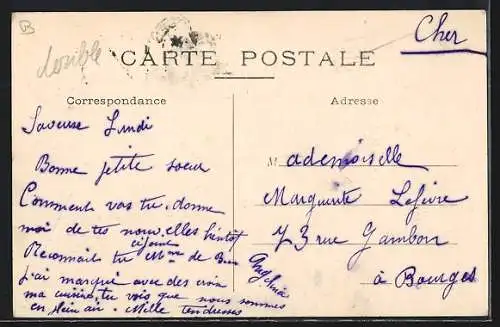 double
CARTE POSTALE
Cher
Correspondance
Adresse
Lundi
Bonne petite soeur
Comment vas tu, donne
moi de tes nouvelles bientôt
Reconnais tu Mme de
ci joint
j'ai marqué avec des croix
ma cuisine, tu vois que nous sommes
en plein air. Mille tendresses
Mademoiselle
Marguerite Lefèvre
73 rue Gambon
à Bourges